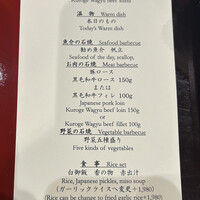 Kuroge Wagyu beef loin
温　物　Warm dish
本日のもの
Today's Warm dish
魚介の石焼　Seafood barbecue
勧め魚介　帆立
Seafood of the day, scallop,
お肉の石焼　Meat barbecue
豚ロース
黒毛和牛ロース 150g
または
黒毛和牛フィレ 100g
Japanese pork loin
Kuroge Wagyu beef loin 150g
or
Kuroge Wagyu beef fillet 100g
野菜の石焼　Vegetable barbecue
野菜五種盛り
Five kinds of vegetables
食　事　Rice set
白御飯　香の物　赤出汁
Rice, Japanese pickles, miso soup
(ガーリックライスへ変更＋1,980)
(Rice can be change to fried garlic rice+1,980)